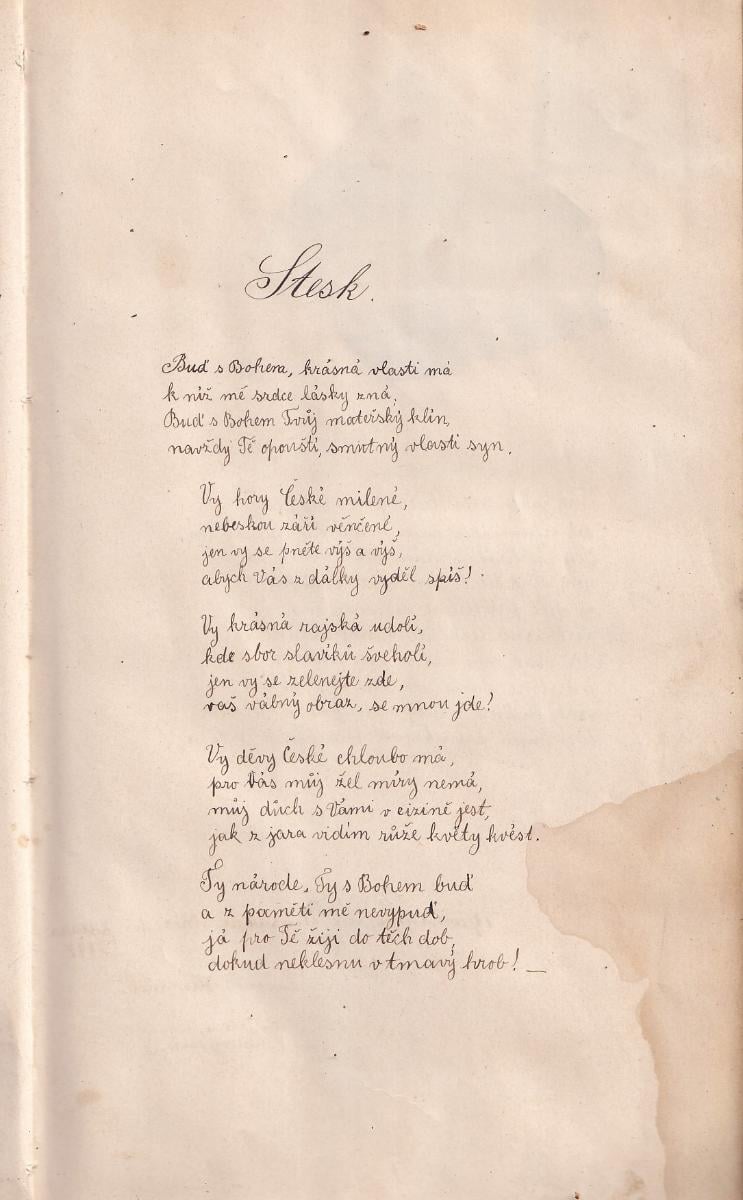 Stesk.
Buď s Bohem, krásná vlasti má
k níž mé srdce lásky zná,
Buď s Bohem Tvůj mateřský klín,
navždy Tě opouští, smutný vlasti syn.
Vy hory České milené,
nebeskou září věnčené,
jen vy se pněte výš a výš,
abych Vás z dálky vyděl spíš!
Vy krásná rajská udolí,
kde sbor slavíků šveholí,
jen vy se zelenejte zde,
vaš vábný obraz, se mnou jde!
Vy děvy České chloubo má,
pro Vás můj žel míry nemá,
můj důch s Vámi v cizině jest,
jak z jara vidím růže květy kvést.
Ty národe, Ty s Bohem buď
a z paměti mě nevypuď,
já pro Tě žiji do těch dob,
dokud neklesnu v tmavý hrob! _